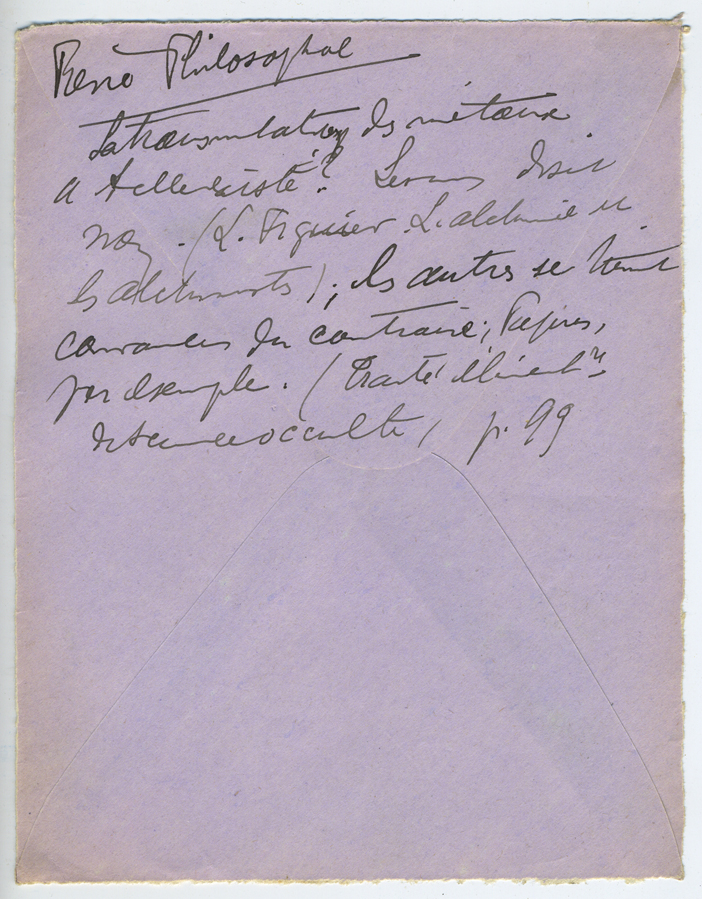 Pierre Philosophal
La transmutation des métaux
a t elle existé? Les uns disent
non. (L. Figuier L'alchimie et
les alchimistes); les autres se tiennent
convaincus du contraire; Papus,
par exemple. (Traité élément^re
de science occulte, p. 99